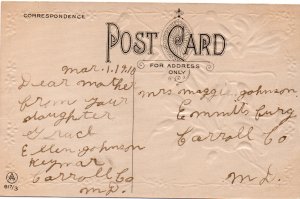 CORRESPONDENCE
POST CARD
FOR ADDRESS
ONLY
Mar. 1, 1910
Dear mother
from your
daughter
Grace
Ellen Johnson
Keymar
Carroll Co
MD.
Mrs Maggie Johnson
Emmitts burg
Carroll Co
MD.
A
817/3